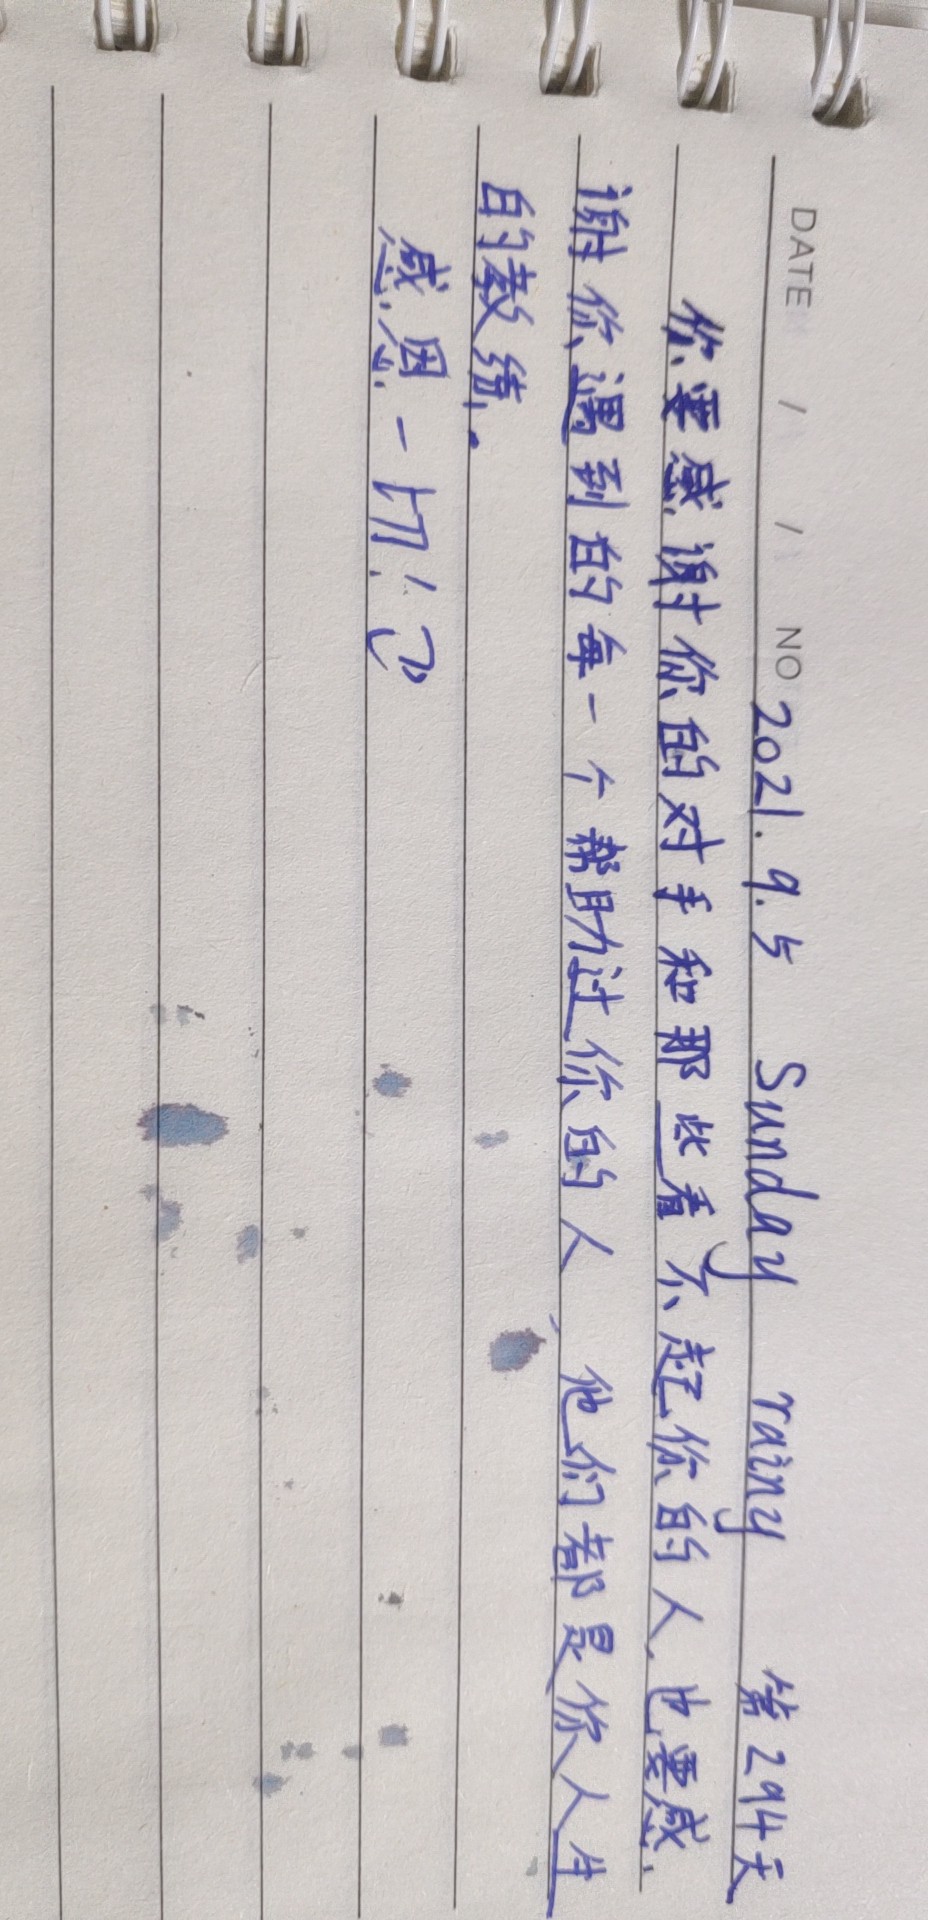 DATE / / NO 2021.9.5 Sunday rainy 第294天
你要感谢你的对手和那些看不起你的人,也要感
谢你遇到的每一个帮助过你的人,他们都是你人生
的教练.
感恩一切!